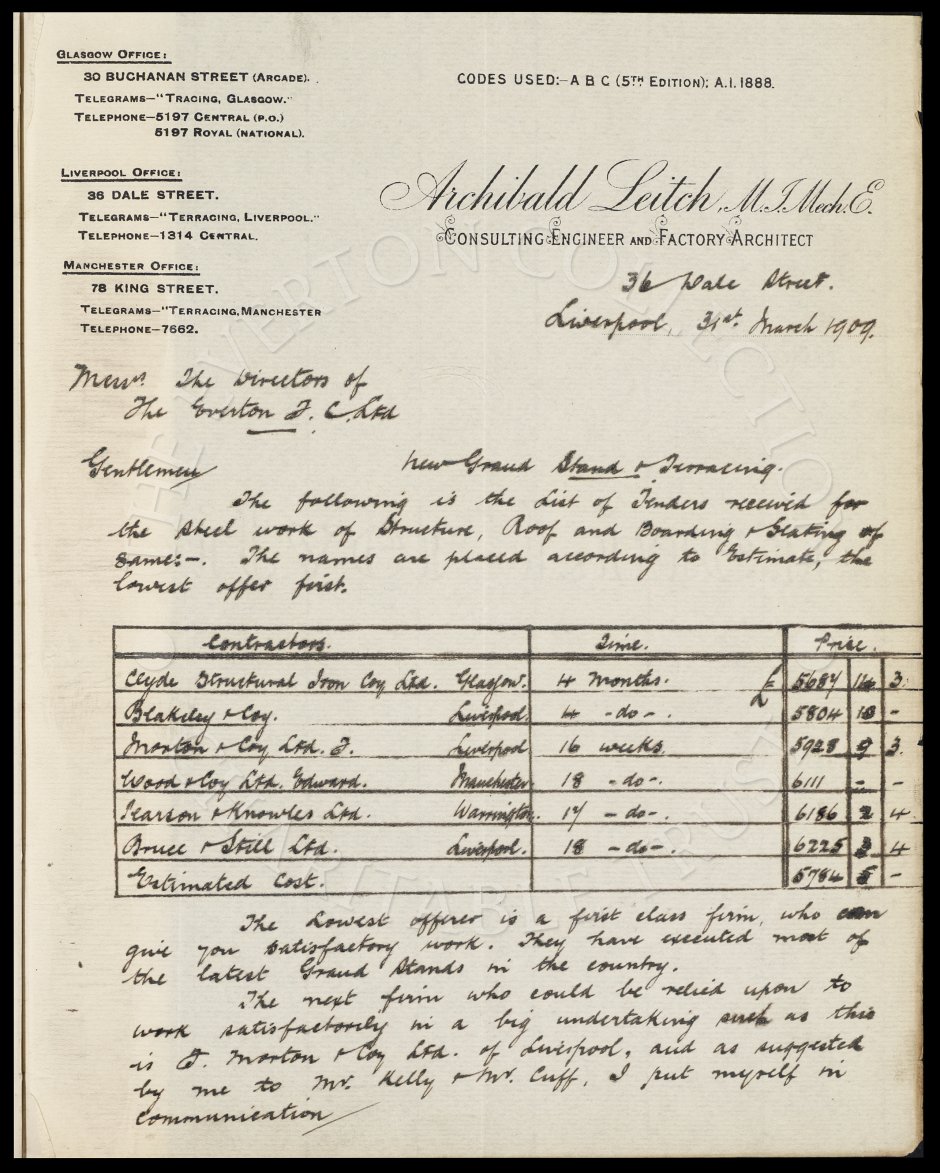 GLASGOW OFFICE:
30 BUCHANAN STREET (ARCADE).
TELEGRAMS—"TRACING, GLASGOW."
TELEPHONE—5197 CENTRAL (P.O.)
5197 ROYAL (NATIONAL).
CODES USED:— A B C (5TH EDITION); A.I. 1888.
LIVERPOOL OFFICE:
36 DALE STREET.
TELEGRAMS—"TERRACING, LIVERPOOL."
TELEPHONE—1314 CENTRAL.
MANCHESTER OFFICE:
78 KING STREET.
TELEGRAMS—"TERRACING, MANCHESTER
TELEPHONE—7662.
Archibald Leitch, M.I.Mech.E.
CONSULTING ENGINEER AND FACTORY ARCHITECT
36 Dale Street.
Liverpool, 31st March 1909.
Messrs The Directors of
The Everton F. C. Ltd
Gentlemen
New Grand Stand & Terracing.
The following is the List of Tenders received for
the steel work of Structure, Roof and Boarding & Slating of
same:-. The names are placed according to Estimate, the
lowest offer first.
Contractors. Time. Price.
Clyde Structural Iron Coy Ltd. Glasgow. 4 months. £ 5687 14 3.
Blakeley & Coy. Liverpool 4 -do-. 5804 13 -
Morton & Coy Ltd. F. Liverpool 16 weeks. 5928 9 3.
Wood & Coy Ltd. Edward. Manchester 18 -do-. 6111 - -
Pearson & Knowles Ltd. Warrington. 17 -do-. 6186 2 4.
Bruce & Still Ltd. Liverpool. 18 -do-. 6225 3 4
Estimated Cost. 5784 5 -
The Lowest offerer is a first class firm, who can
give you satisfactory work. They have executed most of
the latest Grand Stands in the country.
The next firm who could be relied upon to
work satisfactorily in a big undertaking such as this
is F. Morton & Coy Ltd. of Liverpool, and as suggested
by me to Mr. Kelly & Mr. Cuff, I put myself in
communication
THE EVERTON COLLECTION
CHARITABLE TRUST